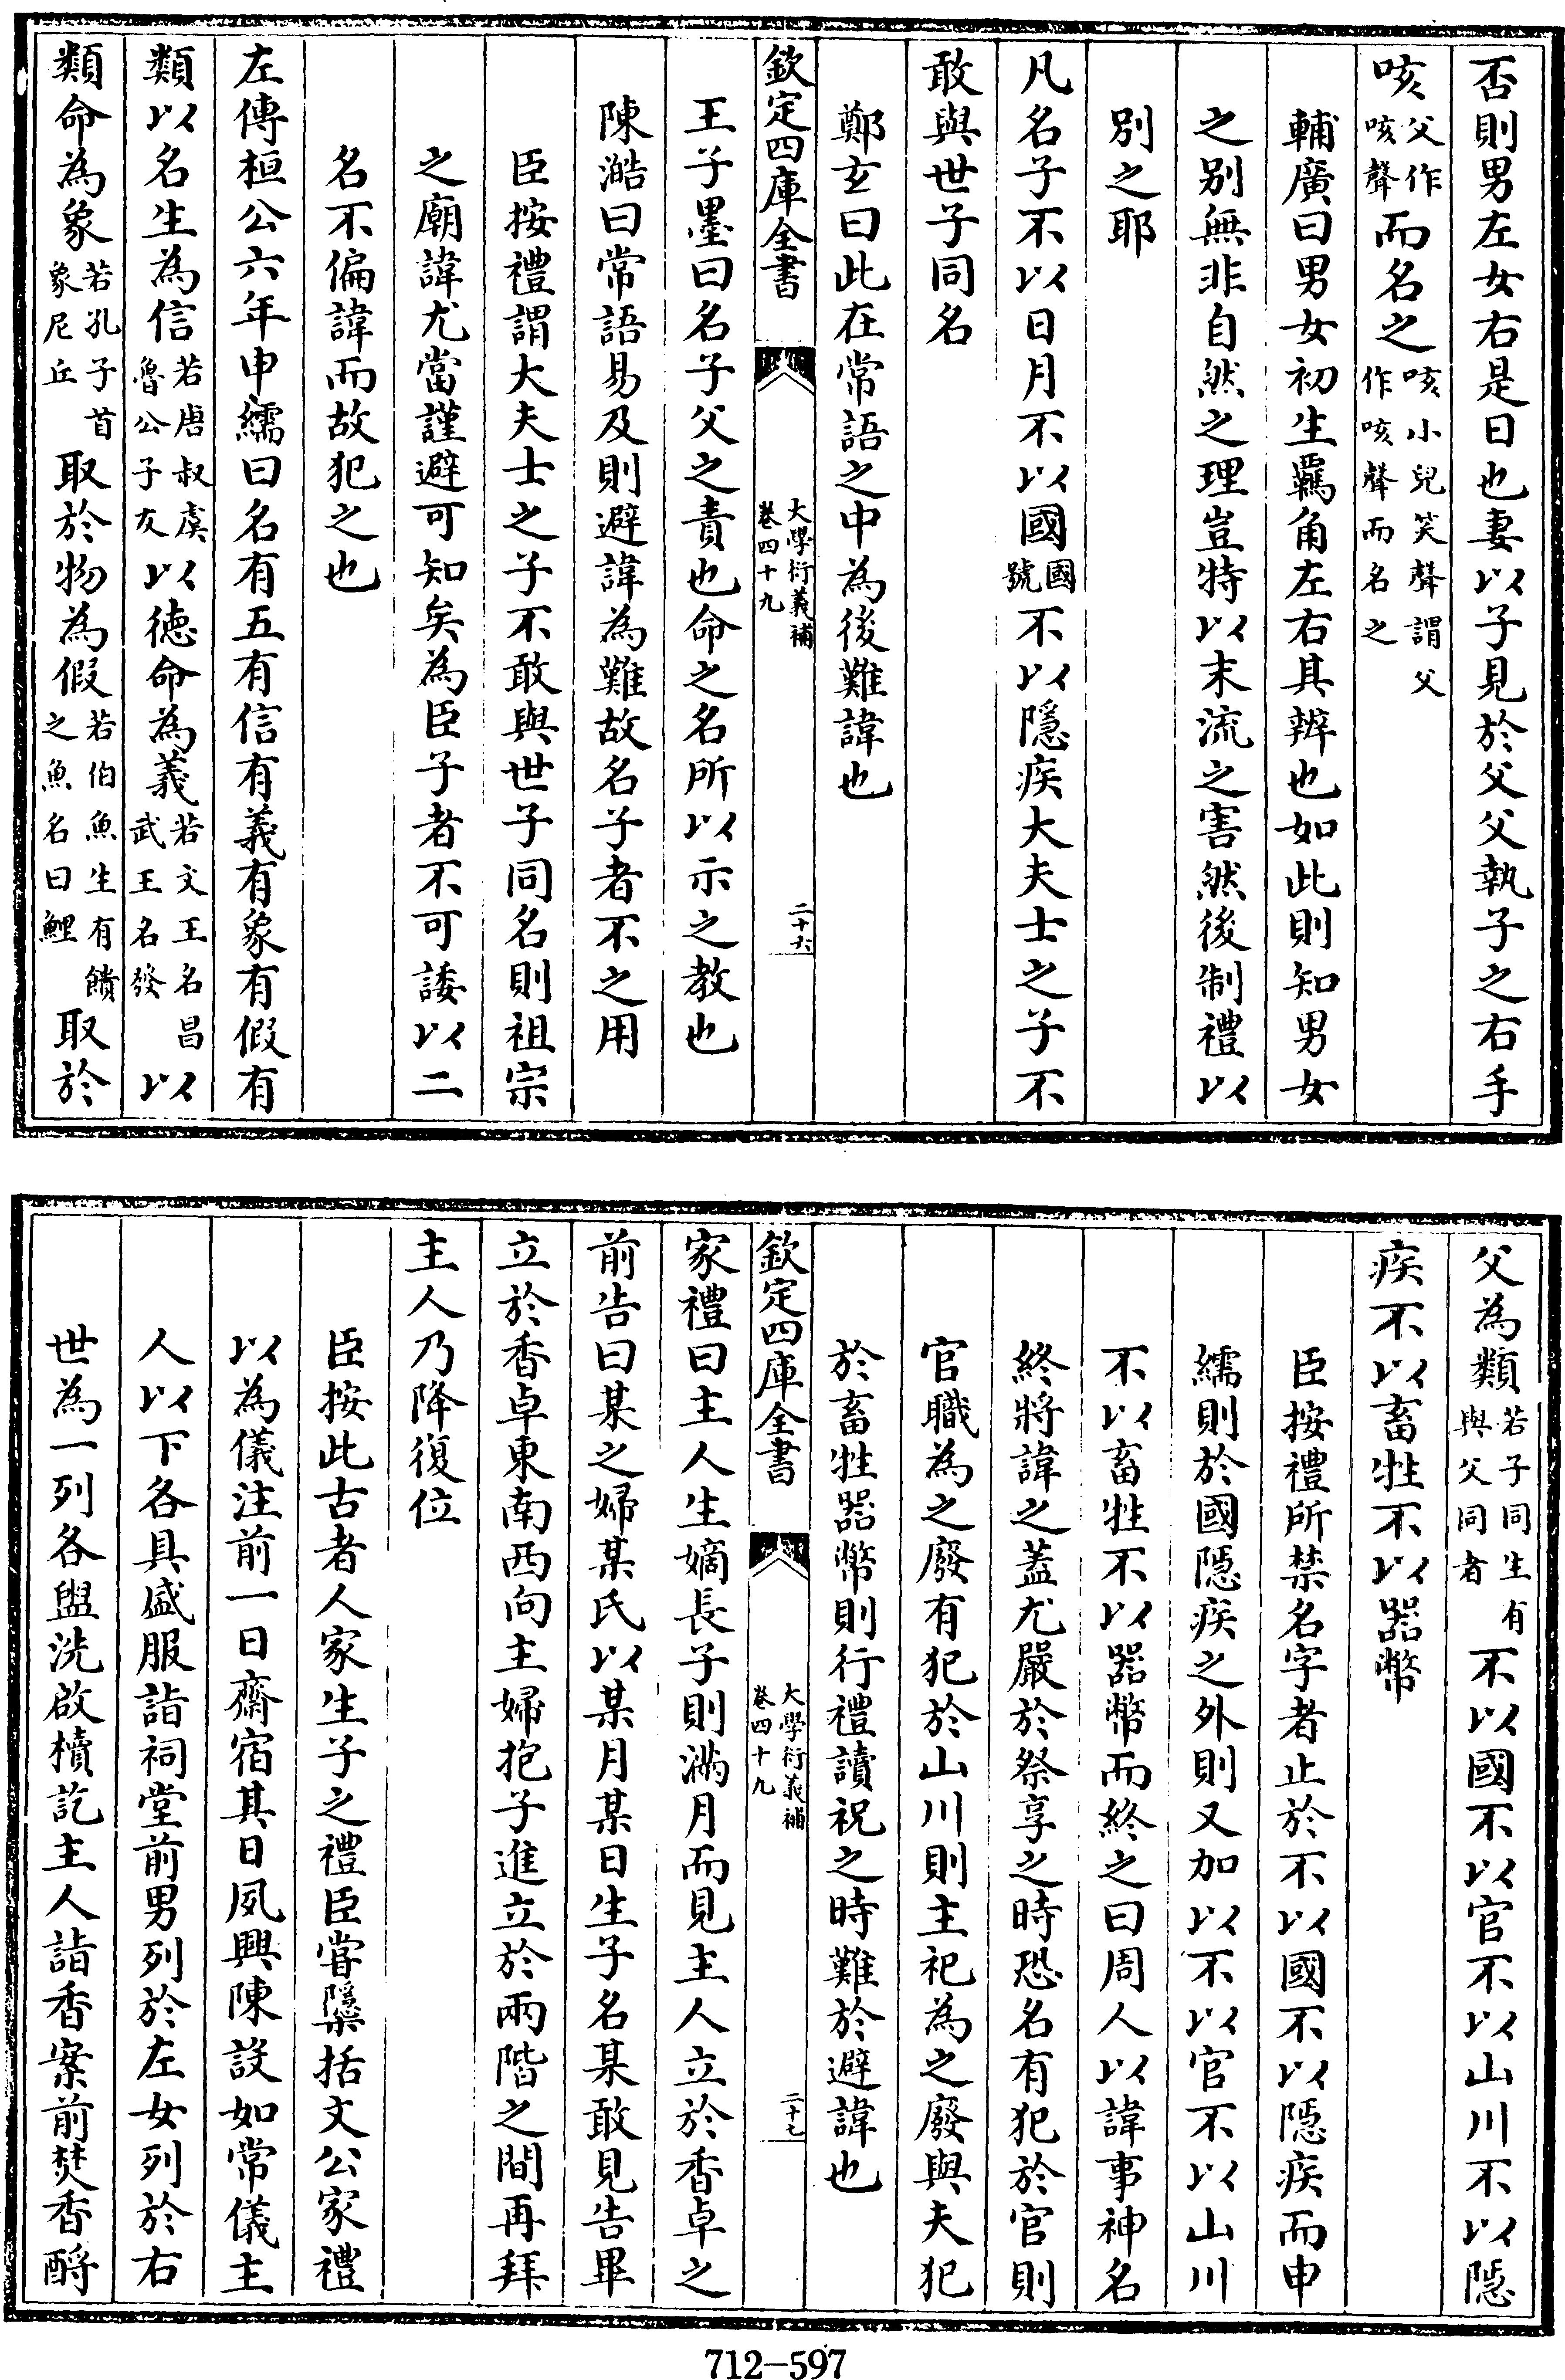 否則男左女右是日也妻以子見於父父執子之右手
咳父作咳聲而名之咳小兒笑聲謂父作咳聲而名之
輔廣曰男女初生羈角左右其辨也如此則知男女
之别無非自然之理豈特以末流之害然後制禮以
別之耶
凡名子不以日月不以國國號不以隱疾大夫士之子不
敢與世子同名
鄭玄曰此在常語之中為後難諱也
欽定四庫全書 大學衍義補 卷四十九 二十六
王子墨曰名子父之責也命之名所以示之教也
陳澔曰常語易及則避諱為難故名子者不之用
臣按禮謂大夫士之子不敢與世子同名則祖宗
之廟諱尤當謹避可知矣為臣子者不可諉以二
名不偏諱而故犯之也
左傳桓公六年申繻曰名有五有信有義有象有假有
類以名生為信若唐叔虞魯公子友以德命為義若文王名昌武王名發以
類命為象若孔子首象尼丘取於物為假若伯魚生有饋之魚名曰鯉取於
父為類若子同生有與父同者不以國不以官不以山川不以隱
疾不以畜牲不以器幣
臣按禮所禁名字者止於不以國不以隱疾而申
繻則於國隱疾之外則又加以不以官不以山川
不以畜牲不以器幣而終之曰周人以諱事神名
終將諱之蓋尤嚴於祭享之時恐名有犯於官則
官職為之廢有犯於山川則主祀為之廢與夫犯
於畜牲器幣則行禮讀祝之時難於避諱也
欽定四庫全書 大學衍義補 卷四十九 二十七
家禮曰主人生嫡長子則滿月而見主人立於香卓之
前告曰某之婦某氏以某月某日生子名某敢見告畢
立於香卓東南西向主婦抱子進立於兩階之間再拜
主人乃降復位
臣按此古者人家生子之禮臣嘗隱括文公家禮
以為儀注前一日齋宿其日夙興陳設如常儀主
人以下各具盛服詣祠堂前男列於左女列於右
世為一列各盥洗啟櫝訖主人詣香案前焚香酹
712-597